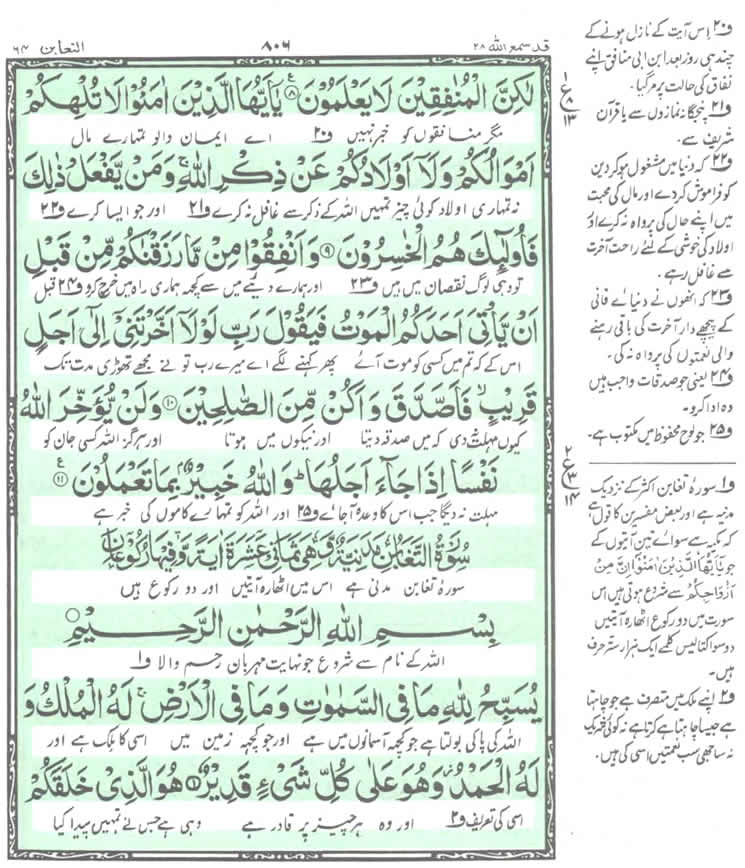 التغابن ٦٤
٨٠٦
قد سمع الله ٢٨
لٰكِنَّ الْمُنٰفِقِيْنَ لَا يَعْلَمُوْنَ ۝٨ يٰۤاَيُّهَا الَّذِيْنَ اٰمَنُوْا لَا تُلْهِكُمْ
مگر منافقوں کو خبر نہیں ف٢٠ اے ایمان والو تمہارے مال
اَمْوَالُكُمْ وَلَاۤ اَوْلَادُكُمْ عَنْ ذِكْرِ اللّٰهِ ۚ وَمَنْ يَّفْعَلْ ذٰلِكَ
نہ تمہاری اولاد کوئی چیز تمہیں اللہ کے ذکر سے غافل نہ کرے ف٢١ اور جو ایسا کرے ف٢٢
فَاُولٰٓئِكَ هُمُ الْخٰسِرُوْنَ ۝٩ وَاَنْفِقُوْا مِنْ مَّا رَزَقْنٰكُمْ مِّنْ قَبْلِ
تو وہی لوگ نقصان میں ہیں ف٢٣ اور ہمارے دیئے میں سے کچھ ہماری راہ میں خرچ کرو ف٢٤ قبل
اَنْ يَّاْتِيَ اَحَدَكُمُ الْمَوْتُ فَيَقُوْلَ رَبِّ لَوْلَاۤ اَخَّرْتَنِيْۤ اِلٰۤى اَجَلٍ
اس کے کہ تم میں کسی کو موت آئے پھر کہنے لگے اے میرے رب تو نے مجھے تھوڑی مدت تک
قَرِيْبٍ ۙ فَاَصَّدَّقَ وَاَكُنْ مِّنَ الصّٰلِحِيْنَ ۝١٠ وَلَنْ يُّؤَخِّرَ اللّٰهُ
کیوں مہلت نہ دی کہ میں صدقہ دیتا اور نیکوں میں ہوتا اور ہرگز اللہ کسی جان کو
نَفْسًا اِذَا جَآءَ اَجَلُهَا ؕ وَاللّٰهُ خَبِيْرٌۢ بِمَا تَعْمَلُوْنَ ۝١١
مہلت نہ دیگا جب اس کا وعدہ آجائے ف٢٥ اور اللہ کو تمہارے کاموں کی خبر ہے
سُوْرَةُ التَّغَابُنِ مَدَنِيَّةٌ وَّهِيَ ثَمَانِيَ عَشْرَةَ اٰيَةً وَّفِيْهَا رُكُوْعَانِ
سورۂ تغابن مدنی ہے اس میں اٹھارہ آیتیں اور دو رکوع ہیں
بِسْــــمِ اللّٰهِ الرَّحْمٰنِ الرَّحِيْــــمِ
اللہ کے نام سے شروع جو نہایت مہربان رحم والا ف١
يُسَبِّحُ لِلّٰهِ مَا فِي السَّمٰوٰتِ وَمَا فِي الْاَرْضِ ۚ لَهُ الْمُلْكُ وَ
اللہ کی پاکی بولتا ہے جو کچھ آسمانوں میں ہے اور جو کچھ زمین میں اسی کا ملک ہے اور
لَهُ الْحَمْدُ ؗ وَهُوَ عَلٰى كُلِّ شَيْءٍ قَدِيْرٌ ۝١ هُوَ الَّذِيْ خَلَقَكُمْ
اسی کی تعریف ف٢ اور وہ ہر چیز پر قادر ہے وہی ہے جس نے تمہیں پیدا کیا
ع ١ ٨ ١٣
ع ٢ ٣ ١٤
ف٢٠ اس آیت کے نازل ہونے کے
چند ہی روز بعد ابن ابی منافق اپنے
نفاق کی حالت پر مر گیا۔
ف٢١ پنجگانہ نمازوں سے یا قرآن
شریف سے۔
ف٢٢ کہ دنیا میں مشغول ہو کر دین
کو فراموش کر دے اور مال کی محبت
میں اپنے حال کی پرواہ نہ کرے اور
اولاد کی خوشی کے لئے راحت آخرت
سے غافل رہے۔
ف٢٣ کہ انھوں نے دنیائے فانی
کے پیچھے دار آخرت کی باقی رہنے
والی نعمتوں کی پرواہ نہ کی۔
ف٢٤ یعنی جو صدقات واجب ہیں
وہ ادا کرو۔
ف٢٥ جو لوح محفوظ میں مکتوب ہے۔
ف١ سورۂ تغابن اکثر کے نزدیک
مدنیہ ہے اور بعض مفسرین کا قول ہے
کہ مکیہ ہے سوائے تین آیتوں کے
جو يٰۤاَيُّهَا الَّذِيْنَ اٰمَنُوْۤا اِنَّ مِنْ
اَزْوَاجِكُمْ سے شروع ہوتی ہیں اس
سورت میں دو رکوع اٹھارہ آیتیں
دو سو اکتالیس کلمے ایک ہزار ستر حرف
ہیں۔
ف٢ اپنے ملک میں متصرف ہے جو چاہتا
ہے جیسا چاہتا ہے کرتا ہے نہ کوئی شریک
نہ ساجھی سب نعمتیں اسی کی ہیں۔